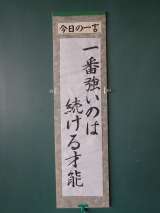 今日の一言
一番強いのは
続ける才能